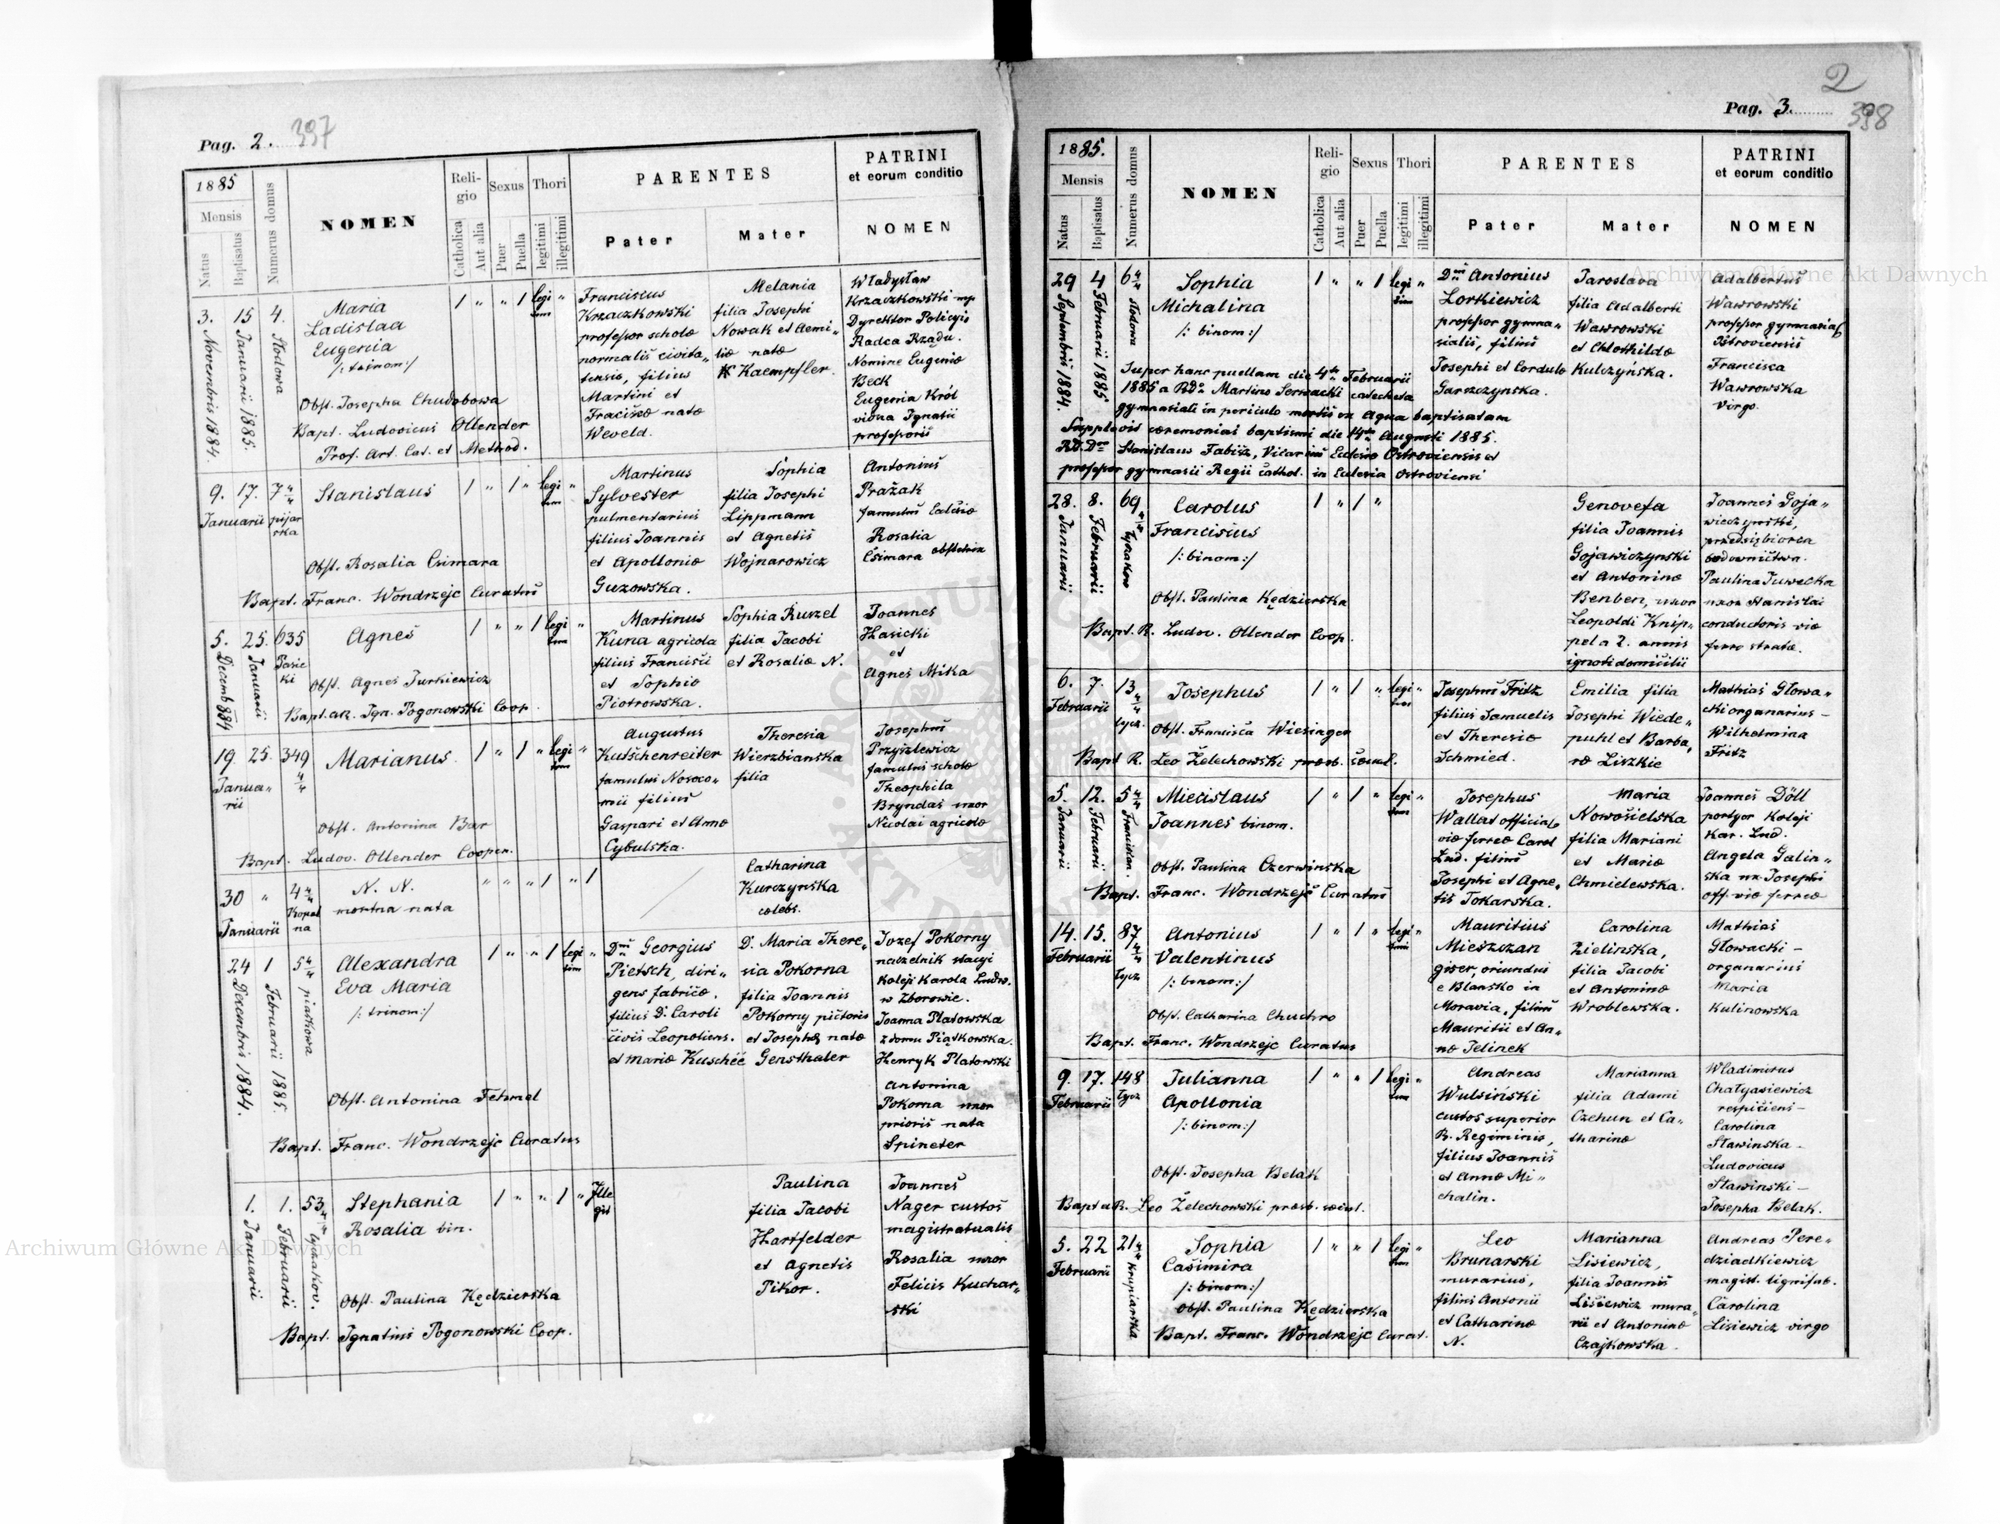 Pag. 2. 397
1885
Mensis
Natus
Baptisatus
Numerus domus
NOMEN
Reli-
gio
Catholica
Aut alia
Sexus
Puer
Puella
Thori
legitimi
illegitimi
PARENTES
Pater
Mater
PATRINI
et eorum conditio
NOMEN
3. Novembris 1884.
15 Januarii 1885.
4. Słodowa
Maria
Ladislaa
Eugenia
/: trinom:/
Obst. Josepha Chudobowa
Bapt. Ludovicus Ollender
Prof. Art. Cat. et Method.
1 " " 1 legi "
tim
Franciscus
Krzaczkowski
professor scholæ
normalis civita„
tensis, filius
Martini et
Fraciscæ natæ
Weveld.
Melania
filia Josephi
Nowak et Aemi„
liæ natæ
Kaempfler.
Władysław
Krzaczkowski mp
Dyrektor Policyi
Radca Rządu.
Nomine Eugeniæ
Beck
Eugenia Król
vidua Ignatii
professoris
9. 17. 7 4/4
Januarii pijar
ska
Stanislaus
Obst. Rosalia Csimara
Bapt. Franc. Wondrzejc Curatus
1 " 1 " legi "
tim
Martinus
Sylvester
pulmentarius
filius Joannis
et Apolloniæ
Guzowska.
Sophia
filia Josephi
Lippmann
et Agnetis
Wojnarowicz
Antonius
Pražak
famulus
Rosalia
Csimara obstetrix
5. Decemb 884
25. Januarii
635
Pasie
ki
Agnes
Obst. Agnes Jurkiewicz
Bapt. ak. Ign. Pogonowski Coop.
1 " " 1 legi "
tim
Martinus
Kuna agricola
filius Francisci
et Sophiæ
Piotrowska.
Sophia Kuszel
filia Jacobi
et Rosaliæ N.
Joannes
Hasicki
et
Agnes Mika
19. 25. 349
4/4
Janua-
rii
Marianus
Obst. Antonina Bar
Bapt. Ludov. Ollender Cooper.
1 " 1 " legi "
tim
Augustus
Kutschenreiter
famulus Nosoco-
mii filius
Gaspari et Annæ
Cybulska.
Theresia
Wierzbianska
filia
Josephus
Przyszlewicz
famulus scholæ
Theophila
Bryndas uxor
Nicolai agricolæ
30 " 4 4/4
Januarii Kopal
na
N. N.
mortua nata
" " " 1 " 1
Catharina
Kurczynska
cœlebs.
24 Decembris 1884.
1 Februarii 1885.
5 4/4 piaskowa
Alexandra
Eva Maria
/: trinom:/
Obst. Antonina Fehmel
Bapt. Franc. Wondrzejc Curatus
1 " " 1 legi "
tim
Dnus Georgius
Pietsch, diri„
gens fabricæ,
filius D. Caroli
civis Leopoliens.
et Mariæ Kuschée
D. Maria There„
sia Pokorna
filia Joannis
Pokorny pictoris
et Josephæ natæ
Gensthaler
Jozef Pokorny
naczelnik stacyi
Koleji Karola Ludw.
w Zborowie.
Joanna Platowska
z domu Piatkowska.
Henryk Platowski
Antonina
Pokorna uxor
prioris nata
Spineter
1. Januarii
1. Februarii
53 4/4 Łyczakow.
Stephania
Rosalia bin.
Obst. Paulina Kędzierska
Bapt. Ignatius Pogonowski Coop.
1 " " 1 " Ille
git
Paulina
filia Jacobi
Hartfelder
et Agnetis
Pikor.
Joannes
Nager custos
magistratualis
Rosalia uxor
Felicis Kuchar„
ski
2
Pag. 3. 398
1885.
Mensis
Natus
Baptisatus
Numerus domus
NOMEN
Reli-
gio
Catholica
Aut alia
Sexus
Puer
Puella
Thori
legitimi
illegitimi
PARENTES
Pater
Mater
PATRINI
et eorum conditio
NOMEN
29 Septembris 1884.
4 Februarii 1885
6 4/4 Słodowa
Sophia
Michalina
/: binom:/
1 " " 1 legi "
tim
Super hanc puellam die 4ta Februarii
1885 a RDo Martino Sernacki catecheta
gymnasiali in periculo mortis ex Aqua baptisatam
Supplevit ceremonias baptismi die 14ta Augusti 1885.
RD. Dnus Stanislaus Fabisz, Vicarius Eclesiæ Ostroviensis et
professor gymnasii Regii cathol. in Eclesia Ostroviensi
Dnus Antonius
Lorkiewicz
professor gymna„
sialis, filius
Josephi et Cordulæ
Garszczynska.
Jaroslava
filia Adalberti
Wawrowski
et Chlothildæ
Kulczyńska.
Adalbertus
Wawrowski
professor gymnasial
Ostroviensis
Francisca
Wawrowska
virgo.
28. Januarii
8. Februarii
69 4/4 Łyczakow
Carolus
Franciscus
/: binom:/
Obst. Paulina Kędzierska
Bapt. R. Ludov. Ollender Coop.
1 " 1 "
Genovefa
filia Joannis
Gojawiczynski
et Antoninæ
Benben, uxor
Leopoldi Knip„
pel a 2. annis
ignoti domicilii
Joannes Goja„
wiczynski,
przedsiębiorca
budownictwa
Paulina Juwecka
uxor Stanislai
conductoris viæ
ferro stratæ.
6. 7. 13 4/4
Februarii Łycz.
Josephus
Obst. Francisca Wiesinger
Bapt R. Leo Żelechowski presb. sæcul.
1 " 1 " legi "
tim
Josephus Fritz
filius Samuelis
et Theresiæ
Schmied.
Emilia filia
Josephi Wiede„
puhl et Barba„
ræ Liszkie
Mathias Głowa„
cki organarius –
Wilhelmina
Fritz
5. Januarii
12. Februarii
5 4/4 Franciskan.
Miecislaus
Joannes binom.
Obst. Paulina Czerwinska
Bapt. Franc. Wondrzejc Curatus
1 " 1 " legi "
tim
Josephus
Wallat official„
viæ ferreæ Carol
Lud. filius
Josephi et Agne„
tis Tokarska.
Maria
Nowosielska
filia Mariani
et Mariæ
Chmielewska.
Joannes Döll
portyer Koleji
Kar. Lud.
Angela Galin„
ska ux. Josephi
off. viæ ferreæ
14. 15. 87 4/4
Februarii Łycz
Antonius
Valentinus
/: binom:/
Obst. Catharina Chuchro
Bapt. Franc. Wondrzejc Curatus
1 " 1 " legi "
timi
Mauritius
Mieszczan
giser, oriundus
e Blansko in
Moravia, filius
Mauritii et An„
næ Jelinek
Carolina
Zielinska,
filia Jacobi
et Antoninæ
Wroblewska.
Mathias
Głowacki –
organarius
Maria
Kulinowska
9. 17. 148
Februarii Łycz
Julianna
Apollonia
/: binom:/
Obst. Josepha Belak
Bapt a R. Leo Żelechowski presb. sæcul.
1 " " 1 legi "
tim
Andreas
Wulsiński
custos superior
R. Regiminis,
filius Joannis
et Annæ Mi„
chalin.
Marianna
filia Adami
Czehun et Ca„
tharinæ
Wladimirus
Chałyasiewicz
respiciens –
Carolina
Sławinska –
Ludovicus
Sławinski –
Josepha Belak.
5. 22 21 4/4
Februarii Krupiarska
Sophia
Casimira
/: binom:/
Obst. Paulina Kędzierska
Bapt. Franc. Wondrzejc Curat.
1 " " 1 legi "
tim
Leo
Brunarski
murarius,
filius Antonii
et Catharinæ
N.
Marianna
Lisiewicz,
filia Joannis
Lisiewicz mura„
rii et Antoninæ
Czajkowska.
Andreas Pere„
dziadkiewicz
magist. lignifab.
Carolina
Lisiewicz virgo
Archiwum Główne Akt Dawnych
Archiwum Główne Akt Dawnych